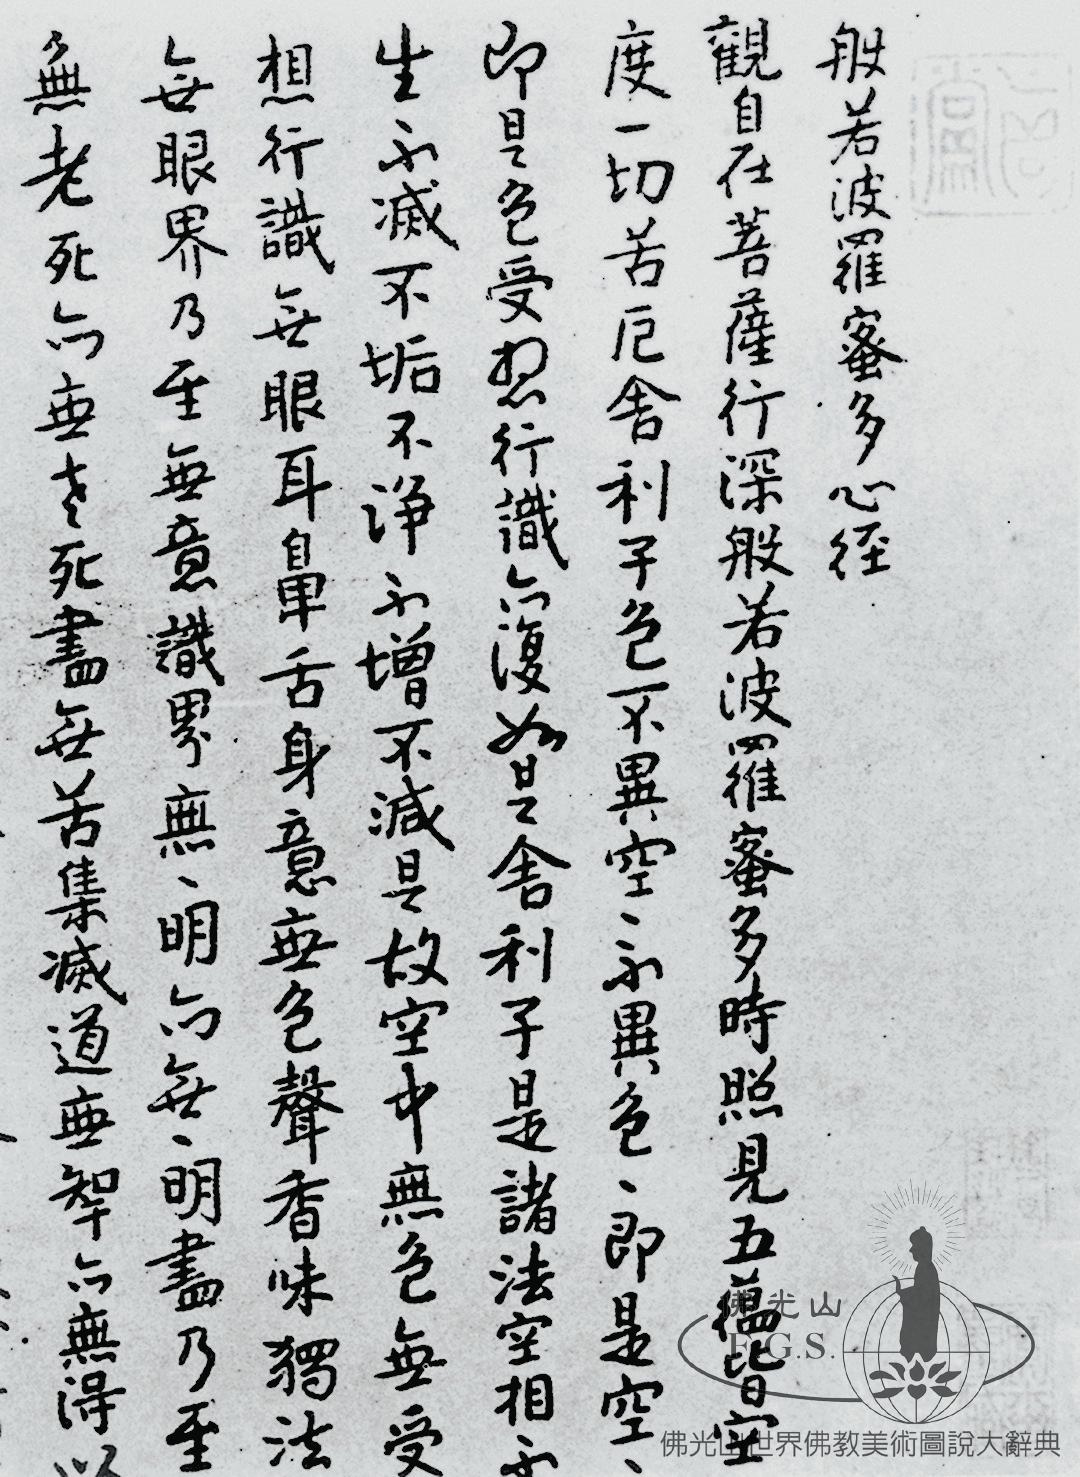 般若波羅蜜多心経
觀自在菩薩行深般若波羅蜜多時照見五蘊皆空
度一切苦厄舍利子色不異空、不異色、即是空、
即是色受想行識亦復如是舍利子是諸法空相不
生不滅不垢不浄不增不減是故空中無色無受
想行識無眼耳鼻舌身意無色聲香味觸法
無眼界乃至無意識界無、明亦無、明盡乃至
無老死亦無老死盡無苦集滅道無智亦無得以
佛光山
F.G.S.
佛光山世界佛教美術圖說大辭典